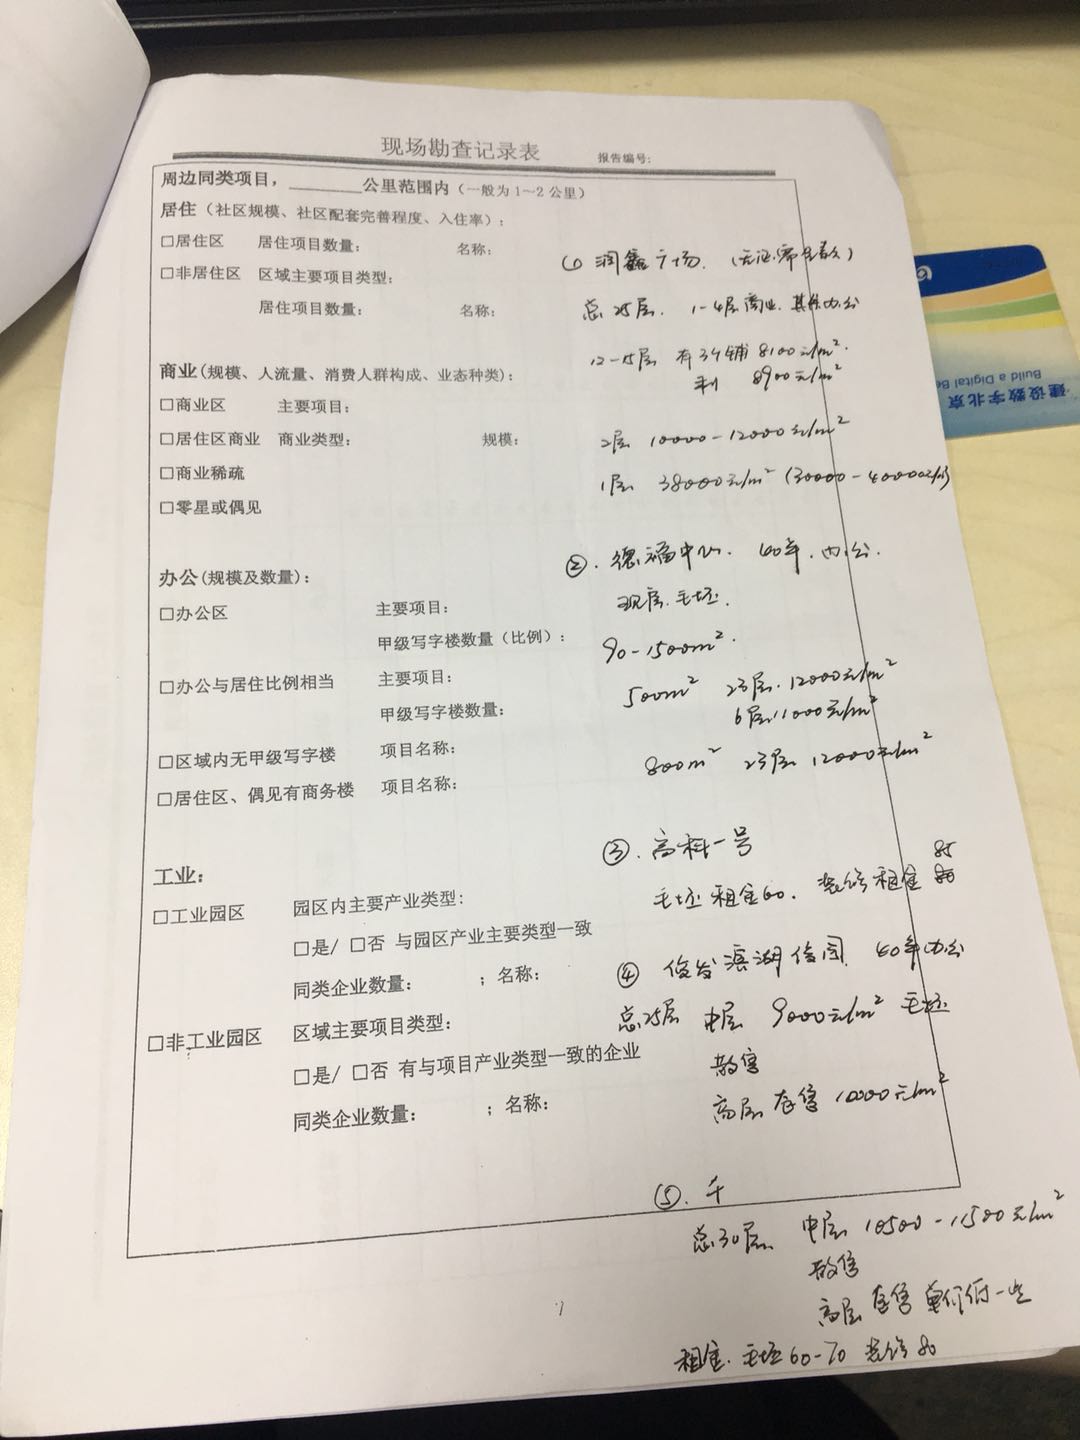 现场勘查记录表 报告编号:
周边同类项目，________公里范围内（一般为1～2公里）
居住（社区规模、社区配套完善程度、入住率）:
□居住区 居住项目数量: 名称:
□非居住区 区域主要项目类型:
居住项目数量: 名称:
① 润鑫广场.
总25层. 1-4层商业. 其余办公
12-15层 有 8100元/m².
8900元/m²
商业(规模、人流量、消费人群构成、业态种类):
□商业区 主要项目:
□居住区商业 商业类型: 规模:
□商业稀疏
□零星或偶见
2层 10000-12000元/m²
1层 38000元/m² (30000-40000元/㎡)
办公(规模及数量):
□办公区 主要项目:
甲级写字楼数量（比例）:
□办公与居住比例相当 主要项目:
甲级写字楼数量:
□区域内无甲级写字楼 项目名称:
□居住区、偶见有商务楼 项目名称:
②. 德福中心. 40年. 办公.
现房. 毛坯.
90-1500m².
500m² 23层. 12000元/m²
6层. 11000元/m²
800m² 23层 12000元/m²
工业:
□工业园区 园区内主要产业类型:
□是/ □否 与园区产业主要类型一致
同类企业数量: ; 名称:
□非工业园区 区域主要项目类型:
□是/ □否 有与项目产业类型一致的企业
同类企业数量: ; 名称:
③. 高科一号
毛坯租金60. 装修租金 85
④ 俊发滨湖俊园. 40年办公
总25层 中层 9000元/m² 毛坯
散售
高层 在售 10000元/m²
⑤. 千
总30层 中层 10500-11500元/m²
散售
高层 在售 单价低一些
租金. 毛坯60-70 装修80
建设数字北京
Build a Digital Be